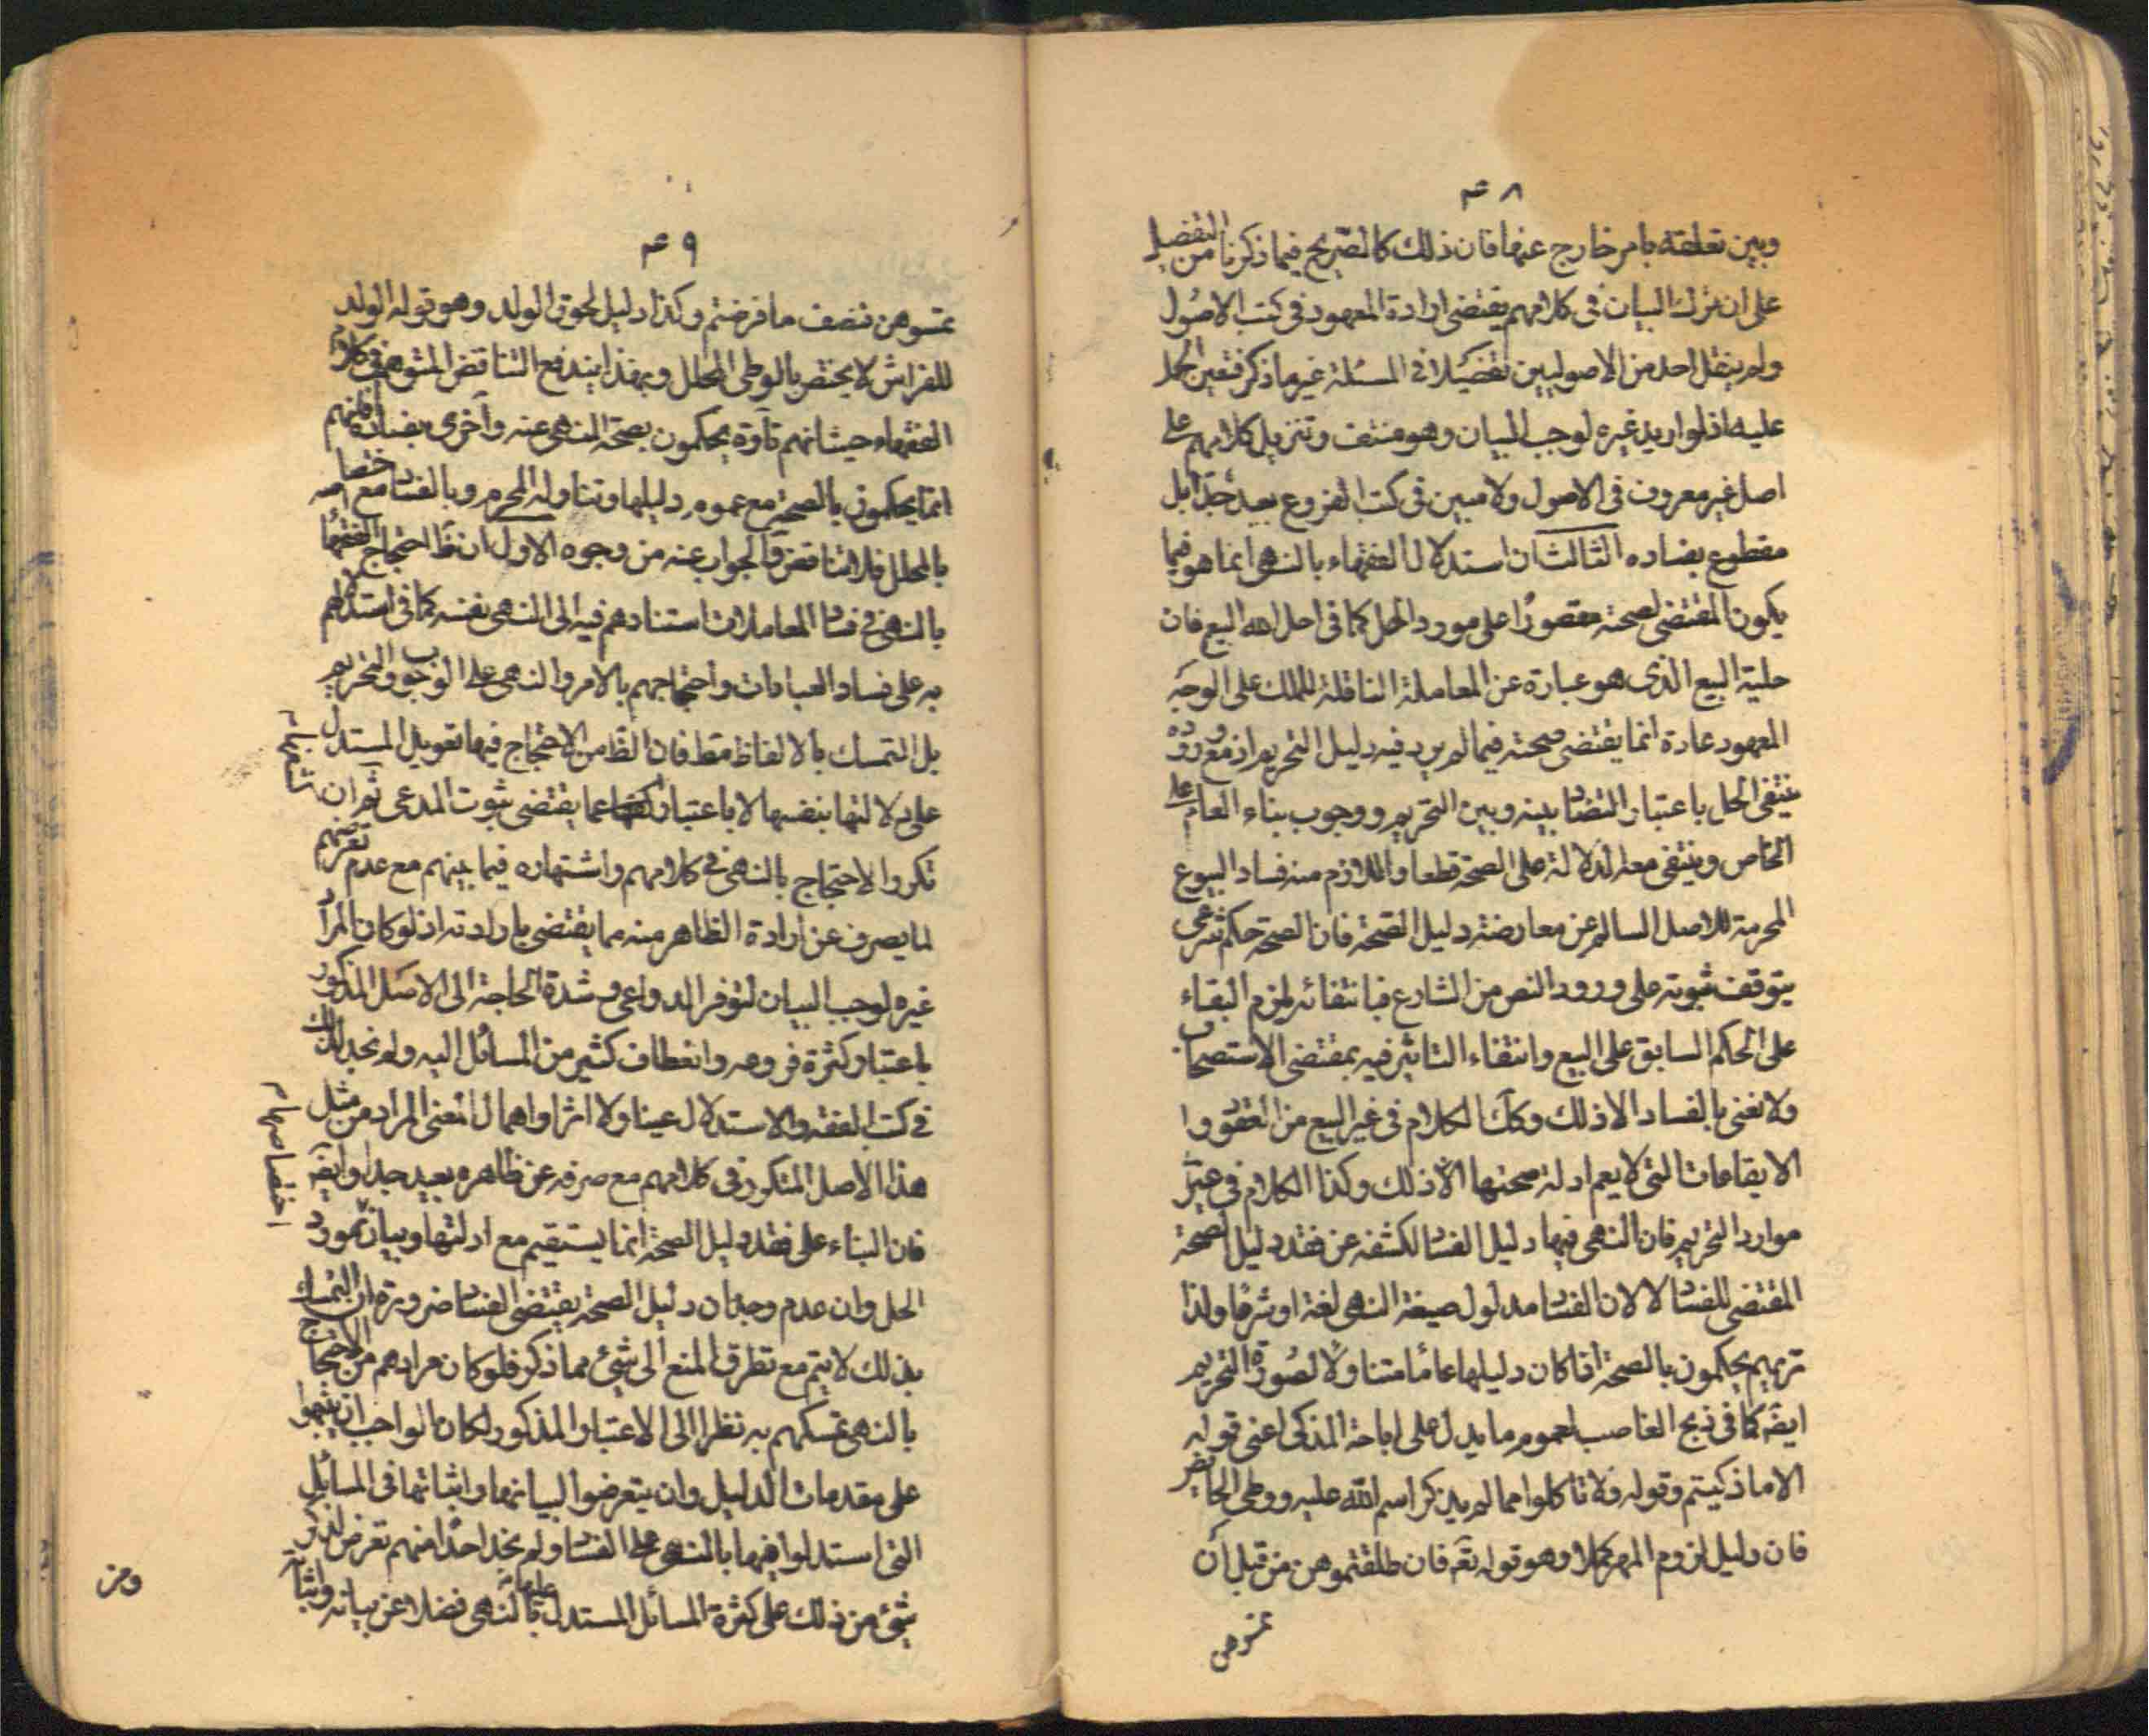 ٤٨
وبين تعلقه بامر خارج عنها فان ذلك كالصريح فيما ذكرنا من التفصيل
على ان ترك البيان فى كلامهم يقتضى ارادة المعهود فى كتب الاصول
ولم ينقل احد من الاصوليين تفصيلا فى المسئلة غير ما ذكر فتعين الحمل
عليه اذ لو اريد غيره لوجب البيان وهو منتف وتنزيل كلامهم على
اصل غير معروف فى الاصول ولا مبين فى كتب الفروع بعيد جدا بل
مقطوع بفساده الثالث ان استدلال الفقهاء بالنهى انما هو فيما
يكون المقتضى لصحته مقصورا على مورد الحل كما فى احل الله البيع فان
حلية البيع الذى هو عبارة عن المعاملة الناقلة للملك على الوجه
المعهود عادة انما يقتضى صحته فيما لم يرد فيه دليل التحريم اذ مع وروده
ينتفى الحل باعتبار التضاد بينه وبين التحريم ووجوب بناء العام على
الخاص وينتفى معه الدلالة على الصحة قطعا واللازم منه فساد البيوع
المحرمة للاصل السالم عن معارضة دليل الصحة فان الصحة حكم شرعى
يتوقف ثبوته على ورود النص من الشارع فبانتفائه يلزم البقاء
على الحكم السابق على البيع وانتفاء التاثير فيه بمقتضى الاستصحاب
ولا نعنى بالفساد الا ذلك وكك الكلام فى غير البيع من العقود وا
الايقاعات التى لا يعم ادلة صحتها الا ذلك وكذا الكلام فى غير
موارد التحريم فان النهى فيها دليل الفساد لكشفه عن فقد دليل الصحة
المقتضى للفساد لا لان الفساد مدلول صيغة النهى لغة او شرعا ولذا
تريهم يحكمون بالصحة اذا كان دليلها عاما متناولا لصورة التحريم
ايضا كما فى ذبح الغاصب لعموم ما يدل على اباحة المذكى اعنى قوله
الا ما ذكيتم وقوله ولا تاكلوا مما لم يذكر اسم الله عليه ووطى الحائض
فان دليل لزوم المهر كملا وهو قوله تعه فان طلقتموهن من قبل ان
تمسوهن
٤٩
تمسوهن فنصف ما فرضتم وكذا دليل لحوق الولد وهو قوله الولد
للفراش لا يختص بالوطى المحلل وبهذا يندفع التناقض المتوهم فى كلام
الفقهاء حيث انهم تارة يحكمون بصحة المنهى عنه وآخرى بفساده فانهم
انما يحكمون بالصحة مع عموم دليلها وتناوله المحرم وبالفساد مع اختصاصه
بالمحلل فلا تناقض والجواب عنه من وجوه الاول ان ظ احتجاج الفقهاء
بالنهى فى فساد المعاملات استنادهم فيه الى النهى نفسه كما فى استدلالهم
به على فساد العبادات واحتجاجهم بالامر والنهى على الوجوب والتحريم
بل التمسك بالالفاظ مط فان الظ من الاحتجاج فيها تعويل المستدل
على دلالتها بنفسها لا باعتبار كشفها عما يقتضى ثبوت المدعى ثم ان
تكرر الاحتجاج بالنهى فى كلامهم واشتهاره فيما بينهم مع عدم تعرضهم
لما يصرف عن ارادة الظاهر منه مما يقتضى بارادته اذ لو كان المراد
غيره لوجب البيان لتوفر الدواعى وشدة الحاجة الى الاصل المذكور
باعتبار كثرة فروعه وانعطاف كثير من المسائل اليه ولم نجد لذلك
فى كتب الفقه والاستدلال عينا ولا اثرا واهمال المعنى المراد من مثل
هذا الاصل المتكرر فى كلامهم مع صرفه عن ظاهره بعيد جدا وايضا
فان البناء على فقد دليل الصحة انما يستقيم مع ادلتها وبيان مورد
الحل وان عدم وجدان دليل الصحة يقتضى الفساد ضرورة ان التمسك
بذلك لا يتم مع تطرق المنع الى شئ مما ذكر فلو كان مرادهم من الاحتجاج
بالنهى تمسكهم به نظرا الى الاعتبار المذكور لكان الواجب ان ينبهوا
على مقدمات الدليل وان يتعرضوا لبيانها واثباتها فى المسائل
التى استدلوا فيها بالنهى على الفساد ولم نجد احدا منهم تعرض لذكر
شئ من ذلك على كثرة المسائل المستدل عليها بالنهى فضلا عن بيانه واثباته
اختصاصها
ومن